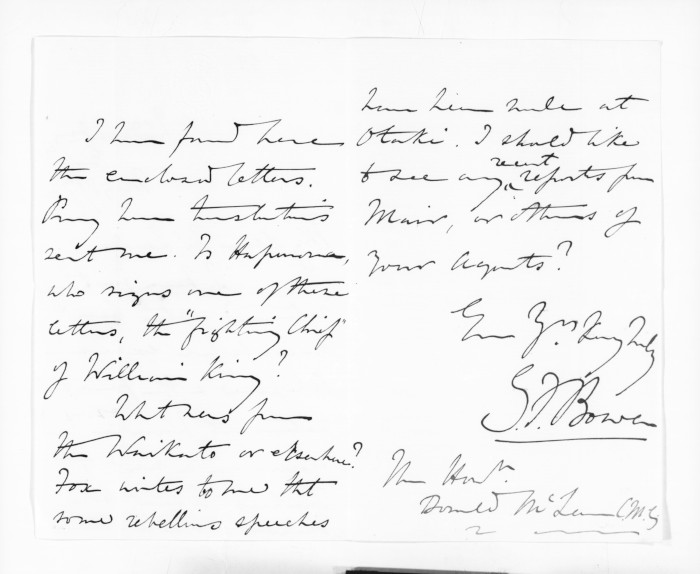 I have found here
the enclosed letters.
Pray have translations
sent me. Is Hapurona,
who signs one of these
letters, the "fighting Chief"
of William King?
What news from
the Waikato or elsewhere?
Fox writes to me that
some rebellious speeches
have been made at
Otaki. I should like
to see any recent reports from
Mair, or others of
your Agents?
Ever Yrs. very truly
G.F. Bowen
The Honble.
Donald McLean C.M.G